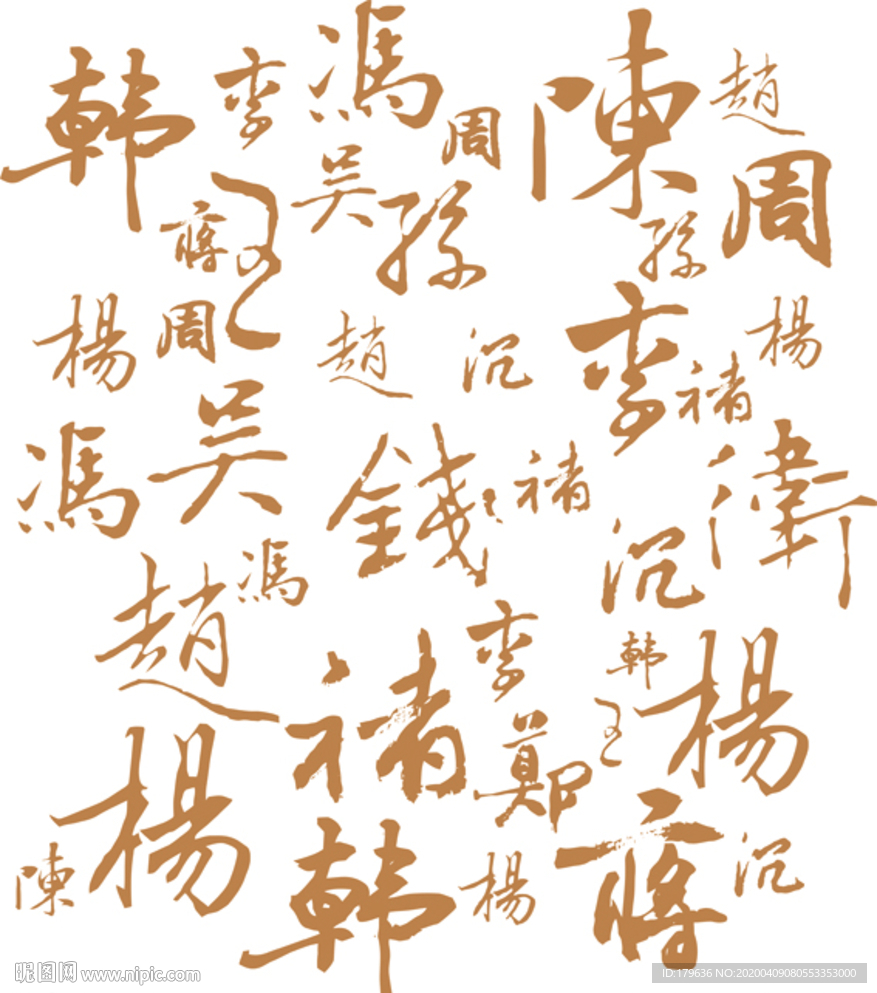 馮
韓
李
陳
趙
周
吳
周
蔣
王
孫
孫
楊
周
趙
沉
李
楊
褚
馮
吳
錢
褚
衛
馮
沉
趙
李
韓
楊
褚
王
鄭
楊
陳
韓
楊
蔣
沉
昵图网 www.nipic.com
ID:179636 NO:20200409080553353000